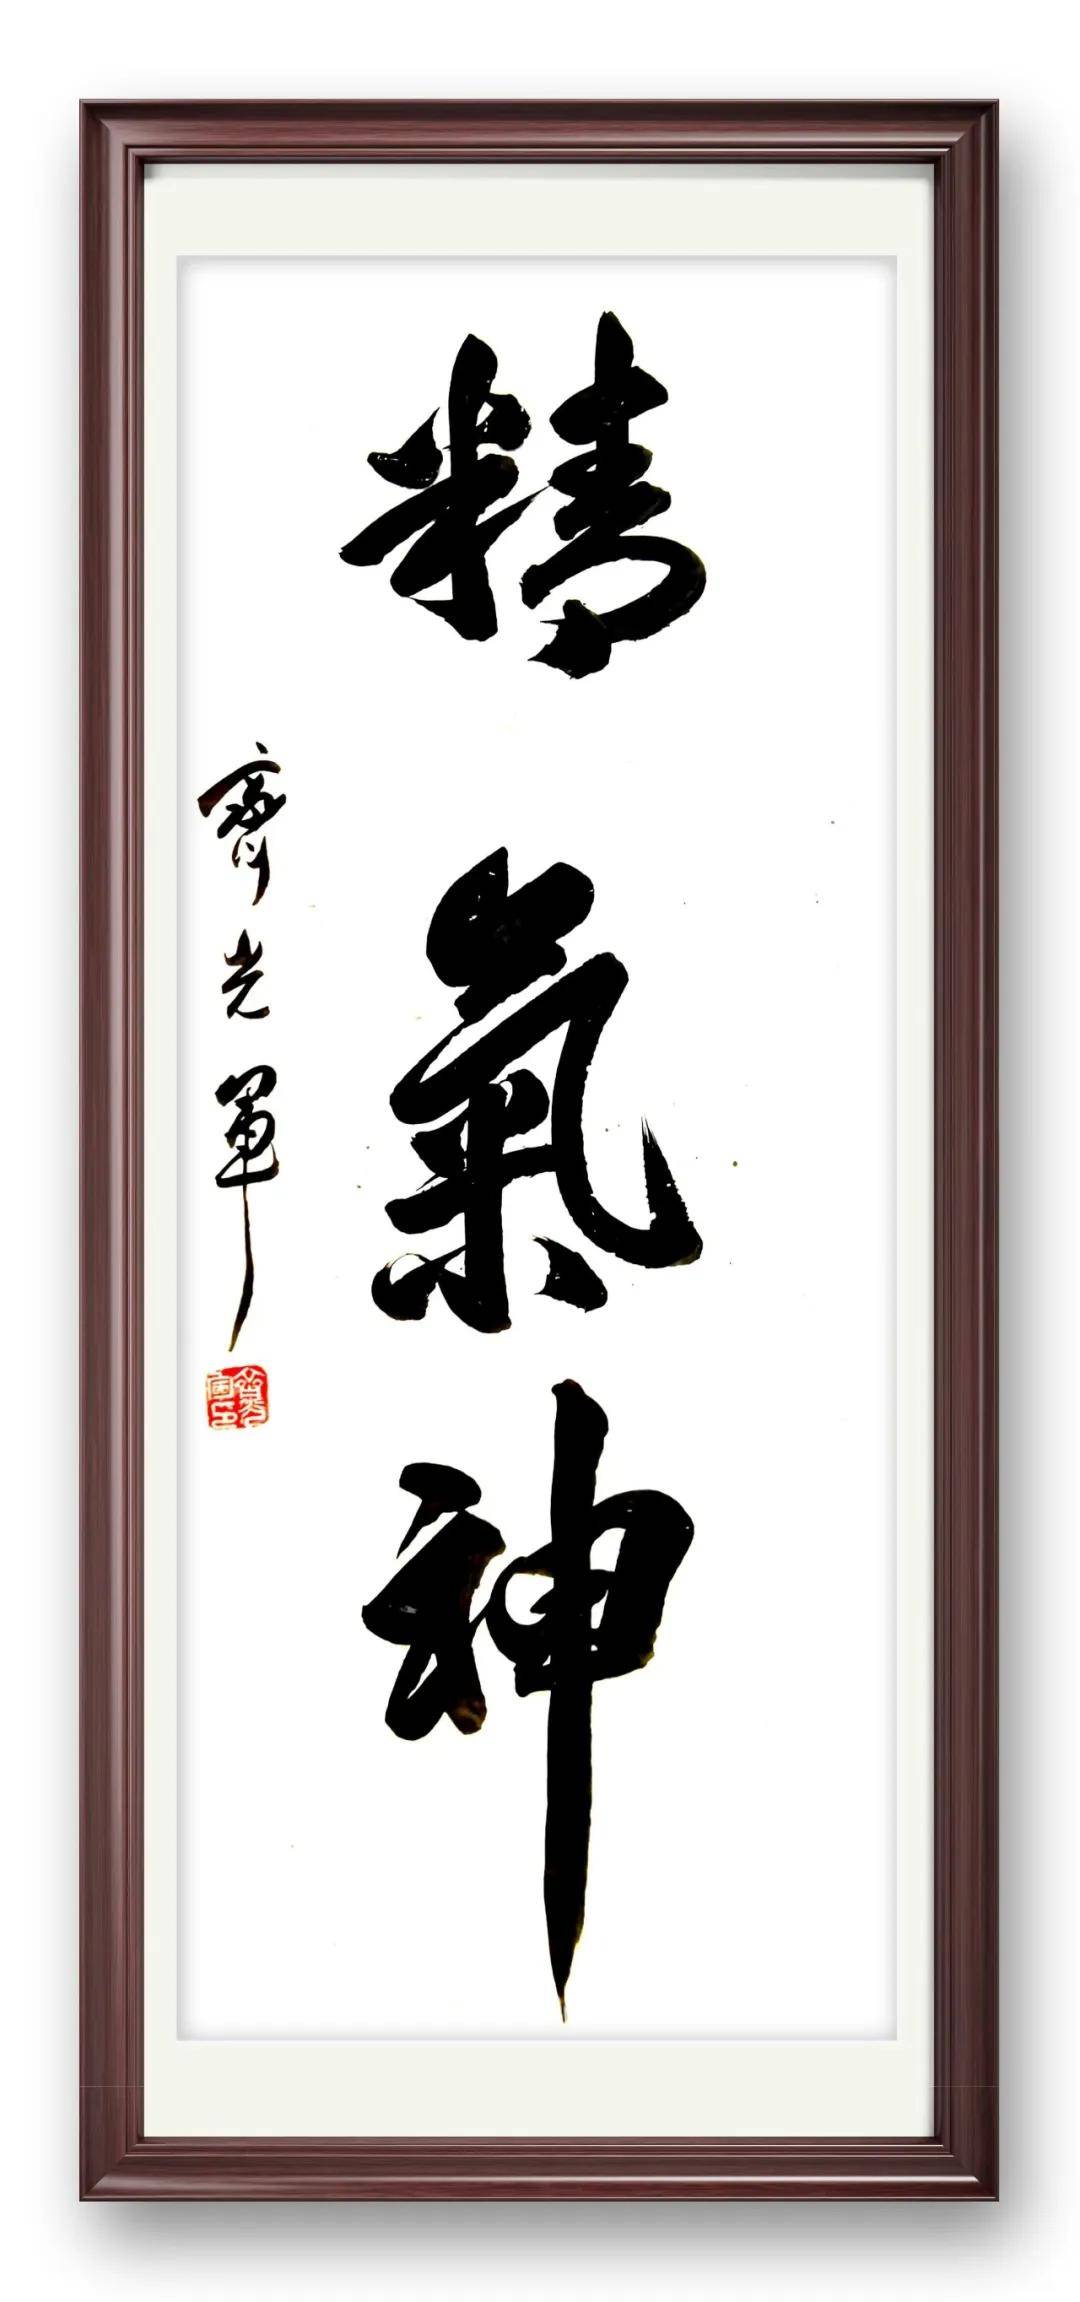 精氣神
齊光軍